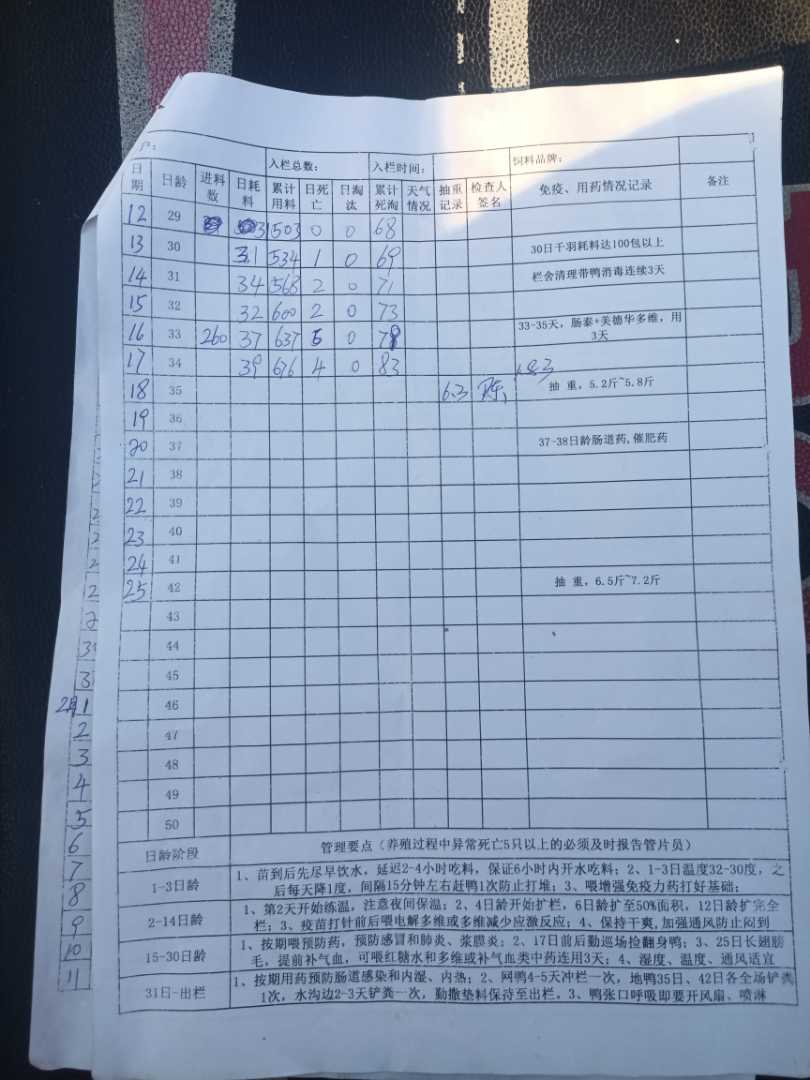 户：
入栏总数： 入栏时间： 饲料品牌：
日期 日龄 进料数 日耗料 累计用料 日死亡 日淘汰 累计死淘 天气情况 抽重记录 检查人签名 免疫、用药情况记录 备注
12 29 503 0 0 68
13 30 31 534 1 0 69 30日千羽耗料达100包以上
14 31 34 568 2 0 71 栏舍清理带鸭消毒连续3天
15 32 32 600 2 0 73
16 33 260 37 637 5 0 78 33-35天，肠泰+美德华多维，用3天
17 34 39 676 4 0 83
18 35 6.3 陈 抽 重，5.2斤~5.8斤
19 36
20 37 37-38日龄肠道药,催肥药
21 38
22 39
23 40
24 41
25 42 抽 重，6.5斤~7.2斤
43
44
45
46
47
48
49
50
日龄阶段 管理要点（养殖过程中异常死亡5只以上的必须及时报告管片员）
1-3日龄 1、苗到后先尽早饮水，延迟2-4小时吃料，保证6小时内开水吃料；2、1-3日温度32-30度，之
后每天降1度，间隔15分钟左右赶鸭1次防止打堆；3、喂增强免疫力药打好基础；
2-14日龄 1、第2天开始练温，注意夜间保温；2、4日龄开始扩栏，6日龄扩至50%面积，12日龄扩完全
栏；3、疫苗打针前后喂电解多维或多维减少应激反应；4、保持干爽,加强通风防止闷到
15-30日龄 1、按期喂预防药，预防感冒和肺炎、浆膜炎；2、17日前后勤巡场捡翻身鸭；3、25日长翅膀
毛，提前补气血，可喂红糖水和多维或补气血类中药连用3天；4、湿度、温度、通风适宜
31日-出栏 1、按期用药预防肠道感染和内湿、内热；2、网鸭4-5天冲栏一次，地鸭35日、42日各全场铲粪
1次，水沟边2-3天铲粪一次，勤撒垫料保持至出栏。3、鸭张口呼吸即要开风扇、喷淋
2月1
2
3
4
5
6
7
8
9
10
11